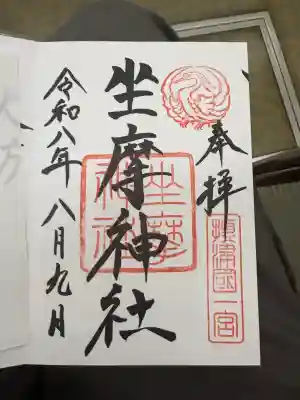 奉拝
摂津国一宮
坐摩神社
坐摩神社
令和八年八月九日